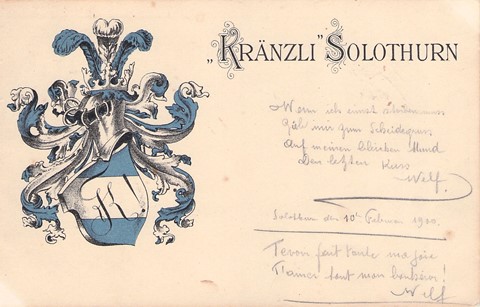 „KRÄNZLI" SOLOTHURN
Wenn ich einst
Gib mir zum Scheidegruss
Auf meinen bleichen Mund
Den letzten Kuss
Welf.
Solothurn den 10ten Februar 1900.
fait toute ma joie
T'aimer tout mon bonheur!
Welf